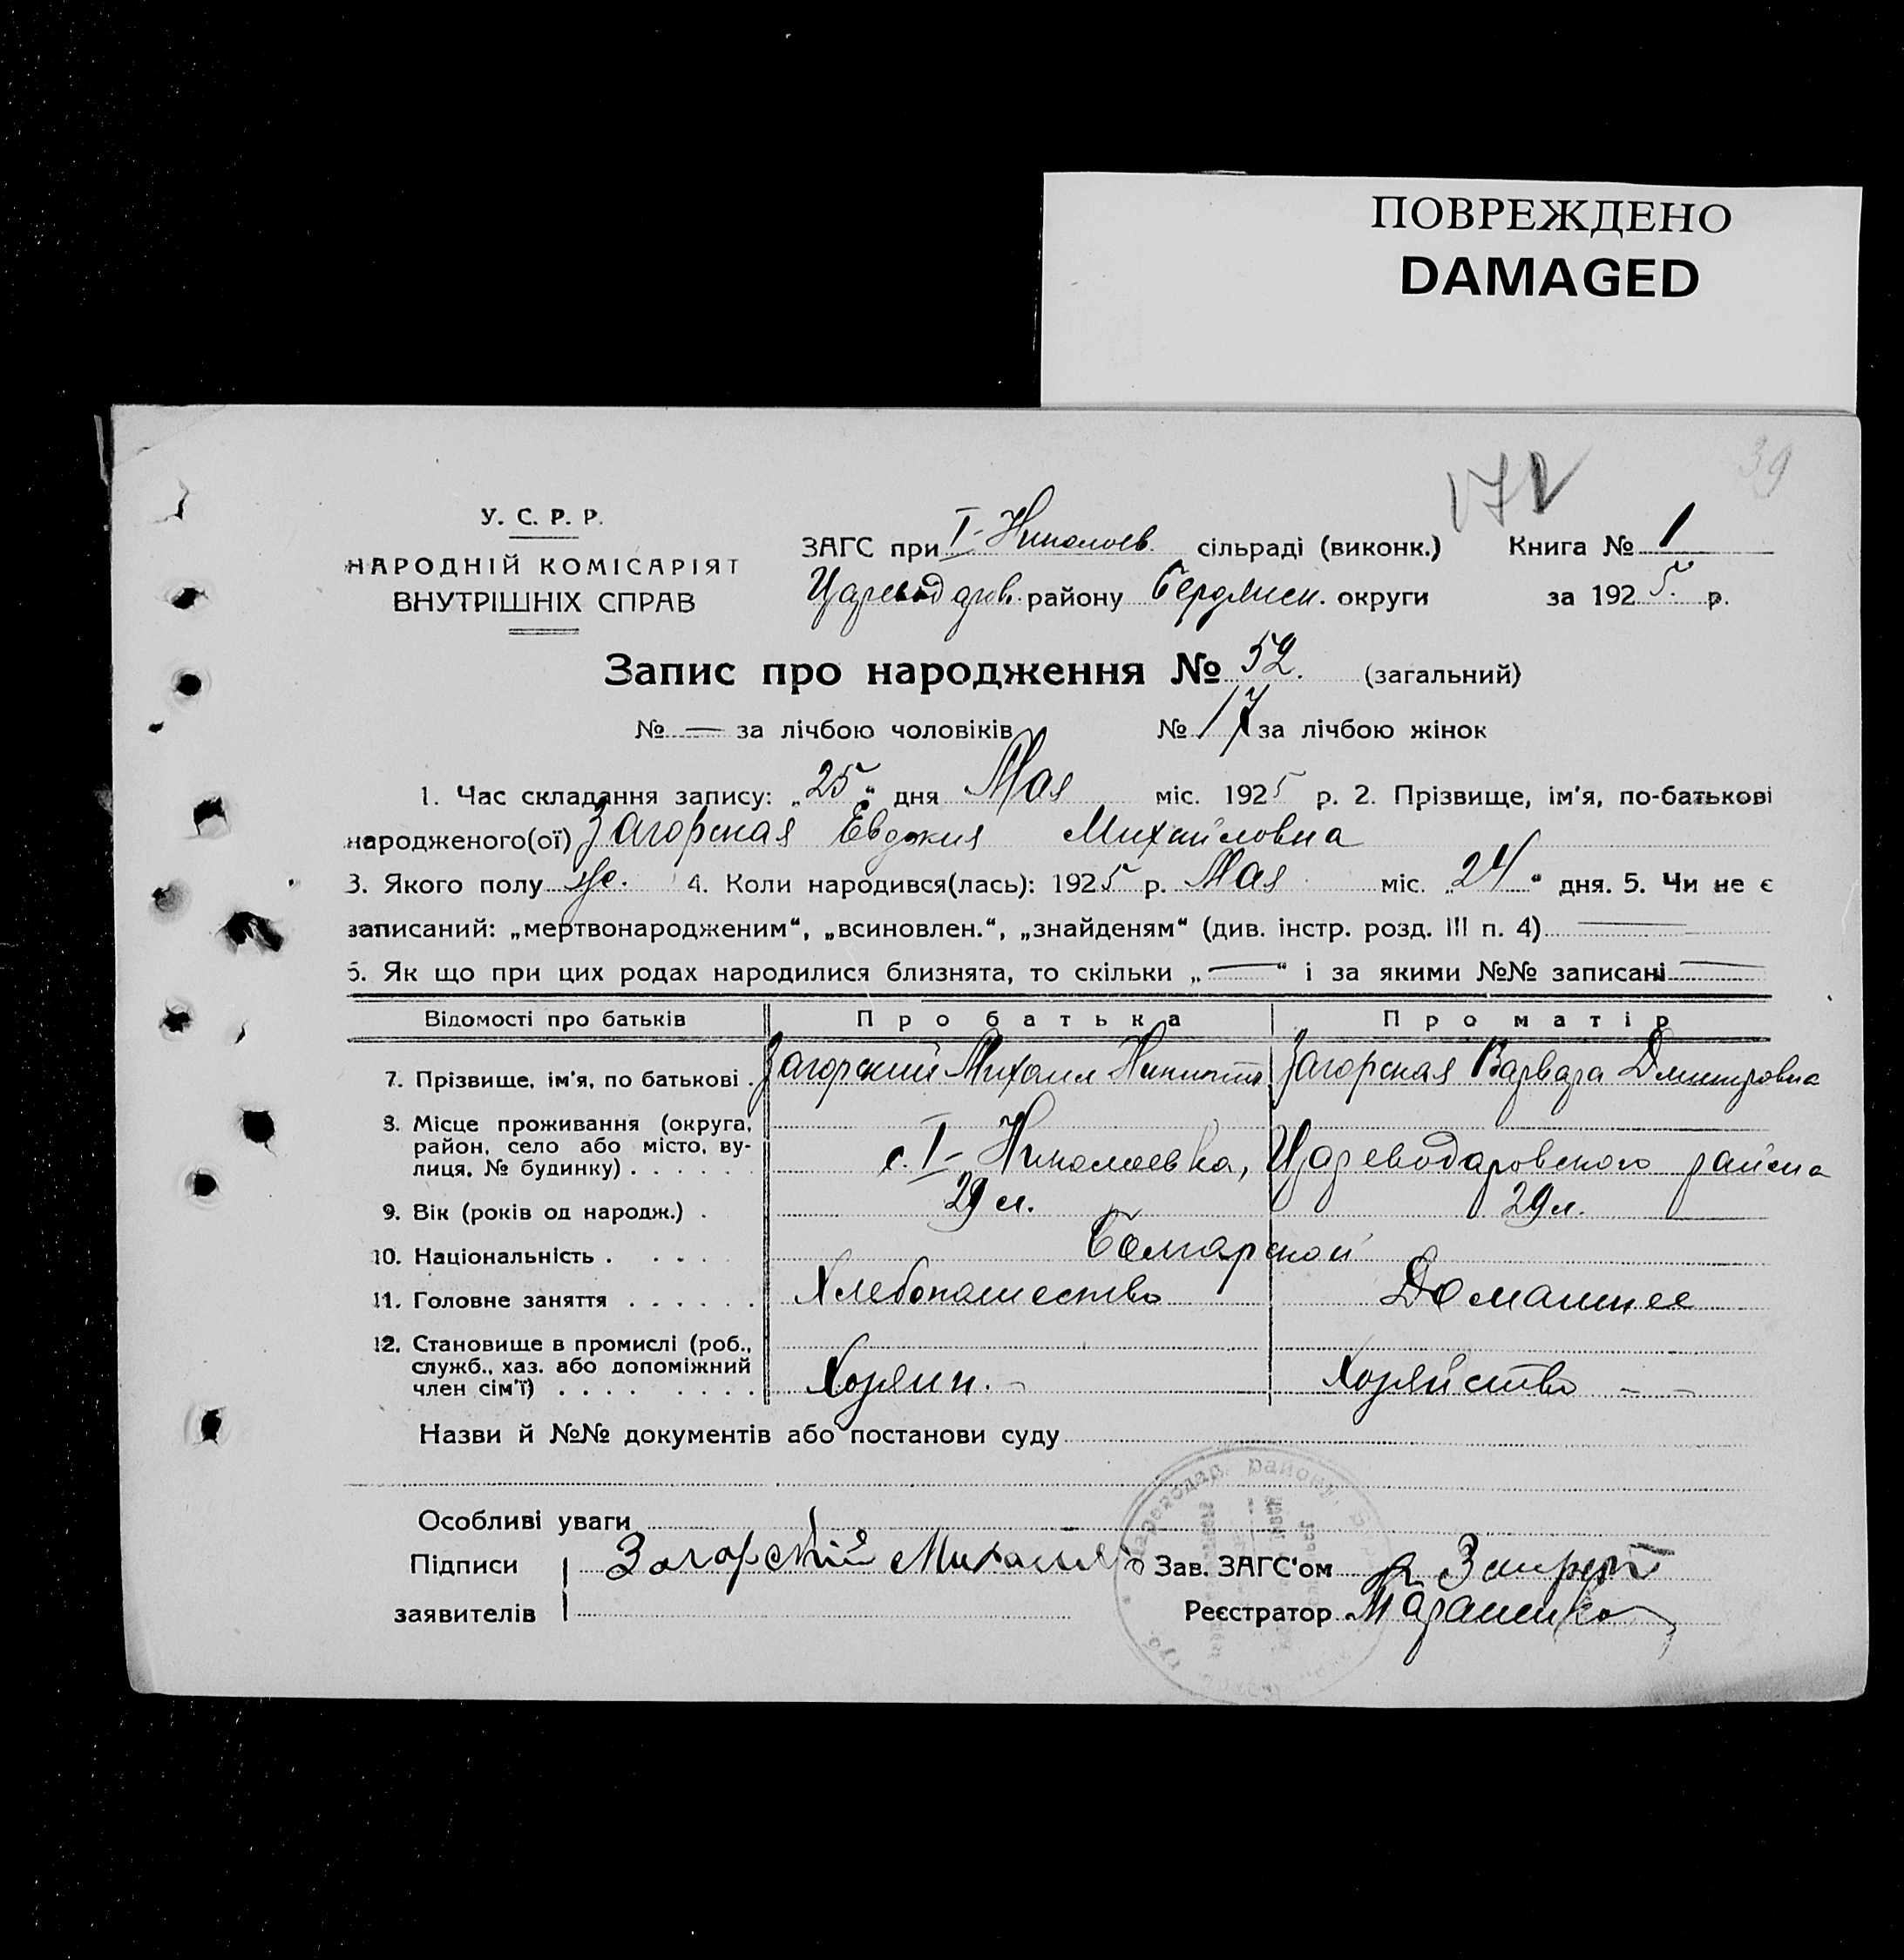 ПОВРЕЖДЕНО
DAMAGED
172
39
У. С. Р. Р.
НАРОДНІЙ КОМІСАРІЯТ
ВНУТРІШНІХ СПРАВ
ЗАГС при I-Николаев. сільраді (виконк.) Книга № 1
Царевод аров. району Бердянск. округи за 1925. р.
Запис про народження № 52. (загальний)
№ — за лічбою чоловіків № 17 за лічбою жінок
1. Час складання запису: „25“ дня Мая міс. 1925 р. 2. Прізвище, ім'я, по-батькові
народженого(ої) Загорская Евдокия Михайловна
3. Якого полу ж. 4. Коли народився(лась): 1925 р. Мая міс. „24“ дня. 5. Чи не є
записаний: „мертвонародженим“, „всиновлен.“, „знайденям“ (див. інстр. розд. III п. 4) —
6. Як що при цих родах народилися близнята, то скільки „—“ і за якими №№ записані —
Відомості про батьків Про батька Про матір
7. Прізвище, ім'я, по батькові . Загорский Михаил Никит Загорская Варвара Дмитровна
8. Місце проживання (округа, район, село або місто, вулиця, № будинку) . . . . . . с. I-Николаевка, Цареводаровского района
9. Вік (років од народж.) . 29 л. 29 л.
10. Національність . . . . Болгарской
11. Головне заняття . . . . . . Хлебопашество Домашнее
12. Становище в промислі (роб., служб., хаз. або допоміжний член сім'ї) . . . . . . . . Хозяин. - Хозяйство - -
Назви й №№ документів або постанови суду
Особливі уваги
Підписи Загорскій Михаил Зав. ЗАГС'ом
заявителів Реєстратор
Цареводар. району